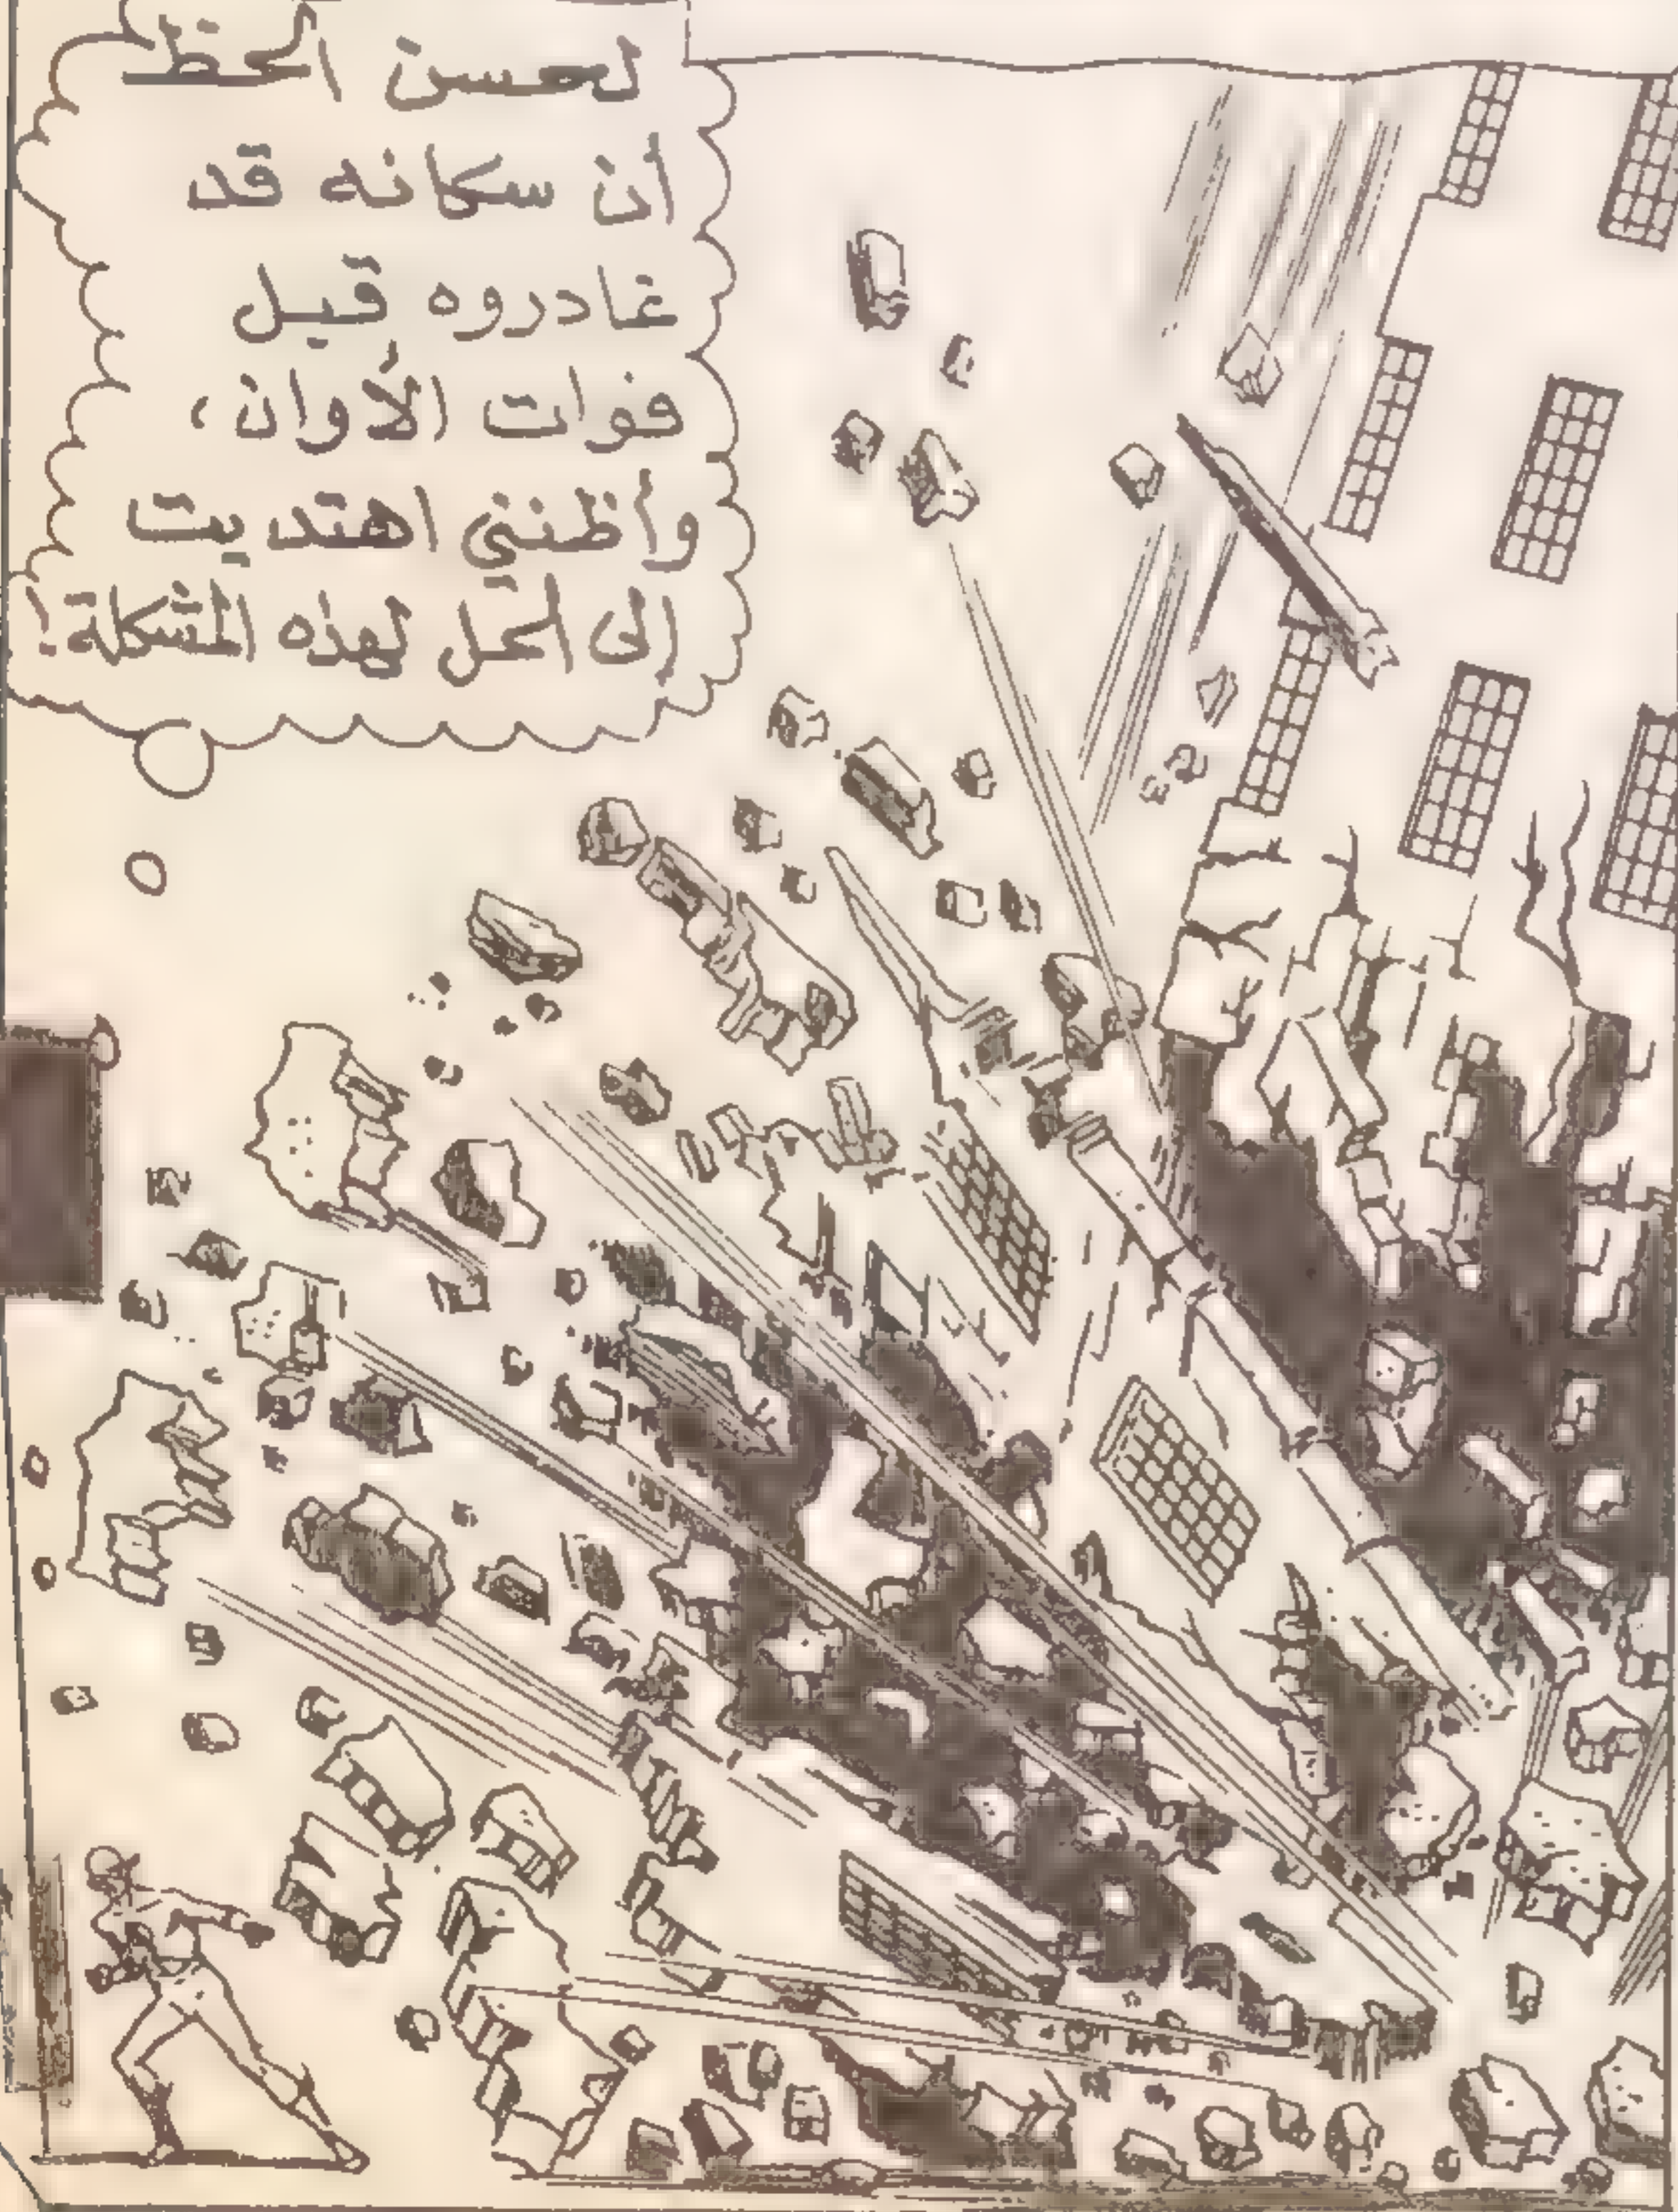 لحسن الحظ
أن سكانه قد
غادروه قبل
فوات الأوان،
وأظنني اهتديت
إلى الحل لهذه المشكلة!